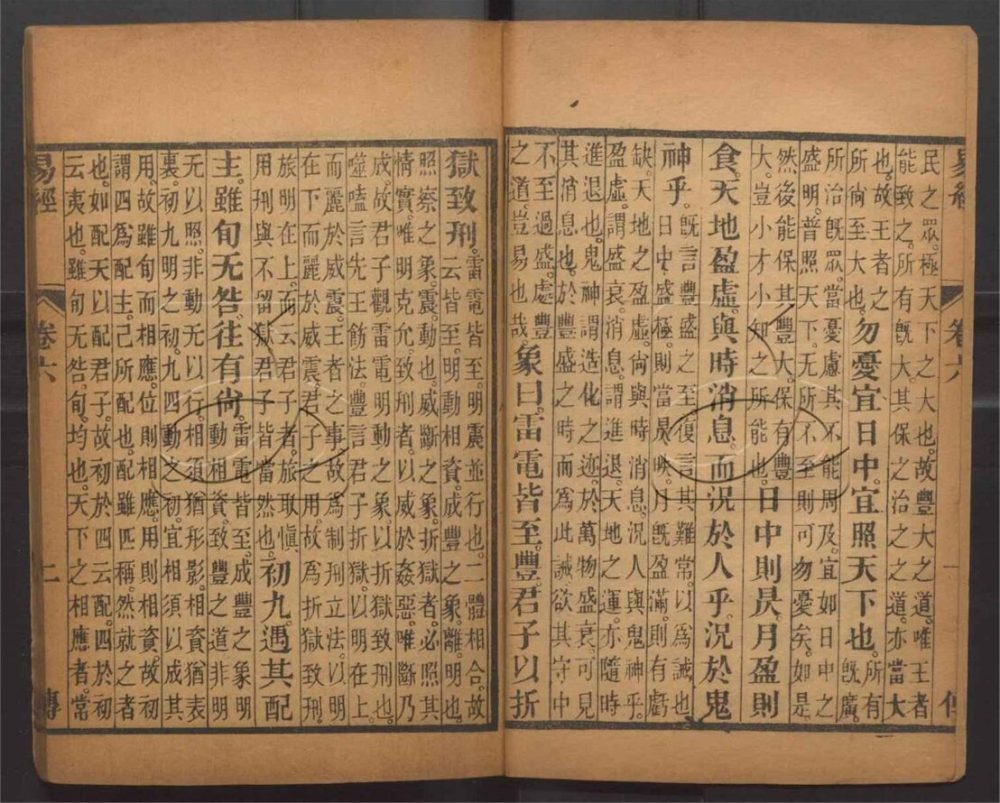 易經 卷六 一
民之眾。極天下之大也。故豐大之道。唯王者
能致之。所有既大。其保之治之之道。亦當大
也。故王者之
所尚至大也。
勿憂宜日中。宜照天下也。
所有
既廣。
所治既眾。當憂慮其不能周及。宜如日中之
盛明。普照天下。无所不至。則可勿憂矣。如是
然後能保其豐大。保有豐
大。豈小才小知之所能也。
日中則昃。月盈則
食。天地盈虛。與時消息。而況於人乎。況於鬼
神乎。
既言豐盛之至。復言其難常。以為誡也
日中盛極。則當昃昳。月既盈滿。則有虧
缺。天地之盈虛。尚與時消息。況人與鬼神乎。
盈虛。謂盛衰。消息。謂進退。天地之運。亦隨時
進退也。鬼神。謂造化之迹。於萬物盛衰。可見
其消息也。於豐盛之時。而為此誡。欲其守中
不至過盛。處豐
之道。豈易也哉。
象曰。雷電皆至。豐。君子以折
獄致刑。
雷電皆至。明震並行也。二體相合。故
云皆至。明動相資。成豐之象。離。明也。
照察之象。震。動也。威斷之象。折獄者。必照其
情實。唯明克允。致刑者。以威於姦惡。唯斷乃
成。故君子觀雷電明動之象。以折獄致刑也。
噬嗑言先王飭法。豐言君子折獄。以明在上。
而麗於威震。王者之事。故為制刑立法。以明
在下而麗於威震。君子之用。故為折獄致刑
旅明在上。而云君子者。旅取慎
用刑與不留獄。君子皆當然也。
初九。遇其配
主。雖旬无咎。往有尚。
雷電皆至。成豐之象。明
動相資。致豐之道。非明
无以照。非動无以行。相須猶形影。相資猶表
裏。初九明之初。九四動之初。宜相須以成其
用。故雖旬而相應。位則相應。用則相資。故初
謂四為配主。己所配也。配雖匹稱。然就之者
也。如配天以配君子。故初於四云配。四於初
云夷也。雖旬无咎。旬。均也。天下之相應者。常
易經 卷六 二 傳